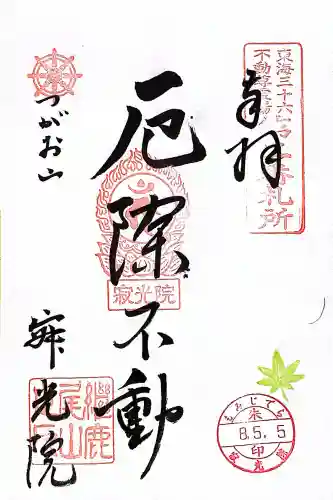 奉拝
東海三十六
不動尊霊場
番札所
厄除不動
寂光院
つがお山
寂光院
継鹿
尾山
もみじでら
朱
8.5.5
印
寂光院